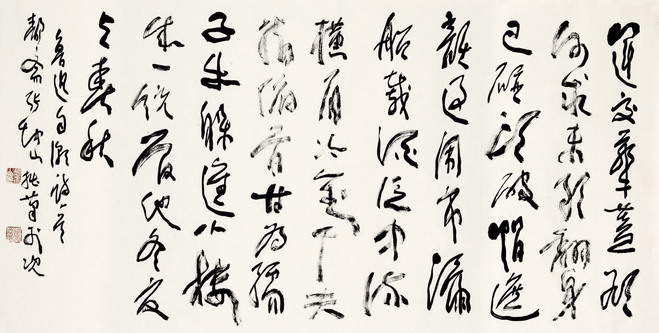 運交華蓋欲
何求未敢翻身
已碰頭破帽遮
顏過鬧市漏
船載酒泛中流
橫眉冷對千夫
指俯首甘為孺
子牛躲進小樓
成一統管他冬夏
與春秋
魯迅自嘲詩一首